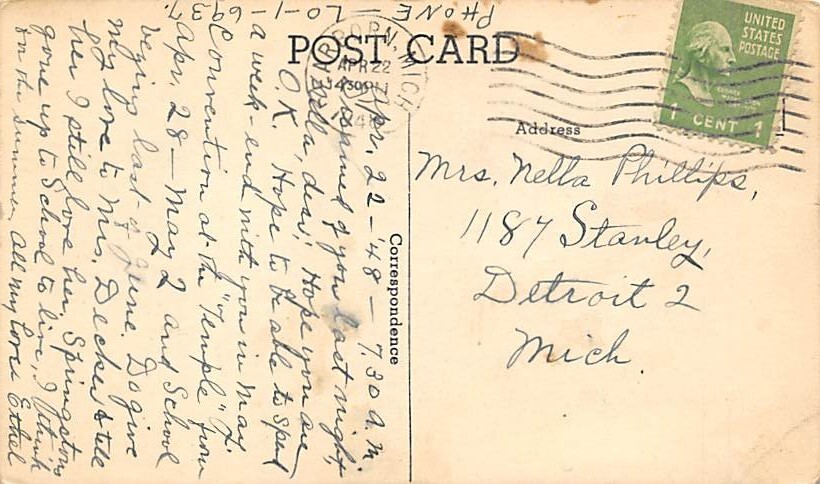 PHONE LO-1-6937.
POST CARD
DEARBORN, MICH
APR 22
430 PM
UNITED
STATES
POSTAGE
1 CENT 1
Address
Correspondence
Mrs. Nella Phillips,
1187 Stanley,
Detroit 2
Mich.
Apr. 22-48-7.30 a.m.
Dreamed of you last night,
Nella, dear, Hope you are
O.K. Hope to be able to spend
a week-end with you in May
Convention at the "Temple" from
Apr. 28-May 2 and School
begins last of June. Do give
my love to Mrs. Decker & tell
her I still love her. Springstons
gone up to School to live, I think
for the summer. All my love Ethel